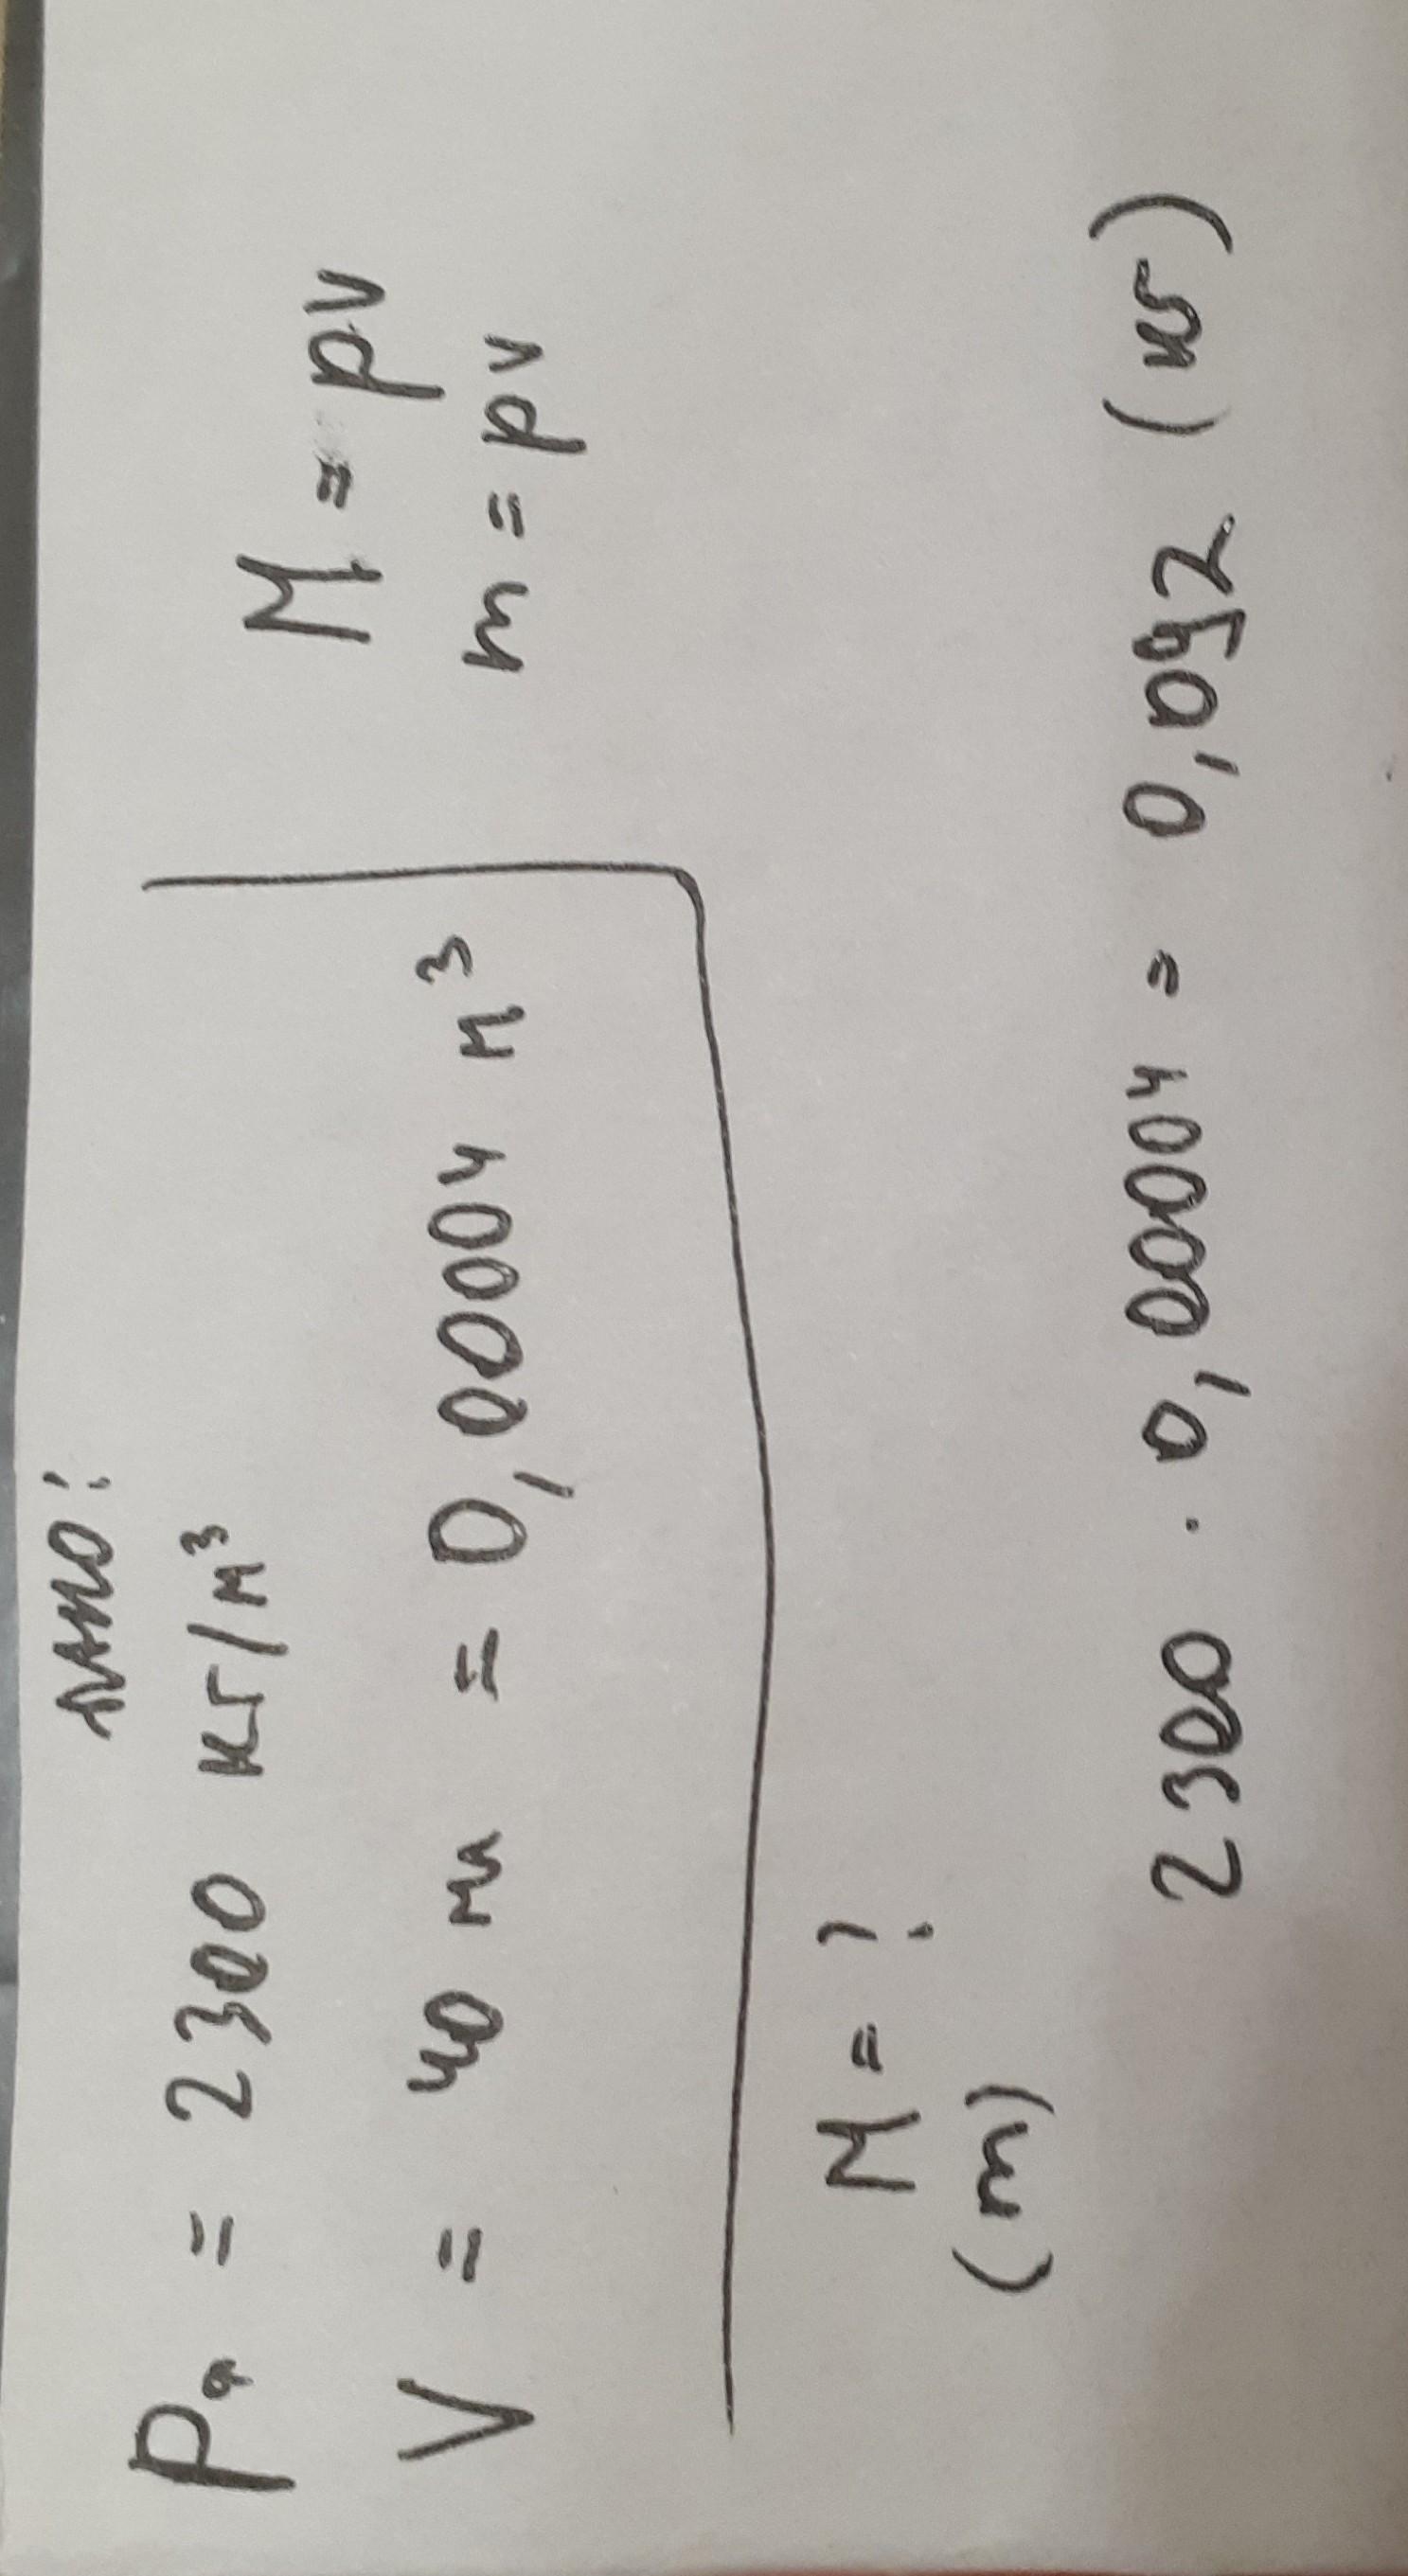 дано:
Pₐ = 2300 кг/м³
V = 40 мл = 0,00004 м³
M = ?
(m)
M = pV
m = pV
2300 · 0,00004 = 0,092 (кг)